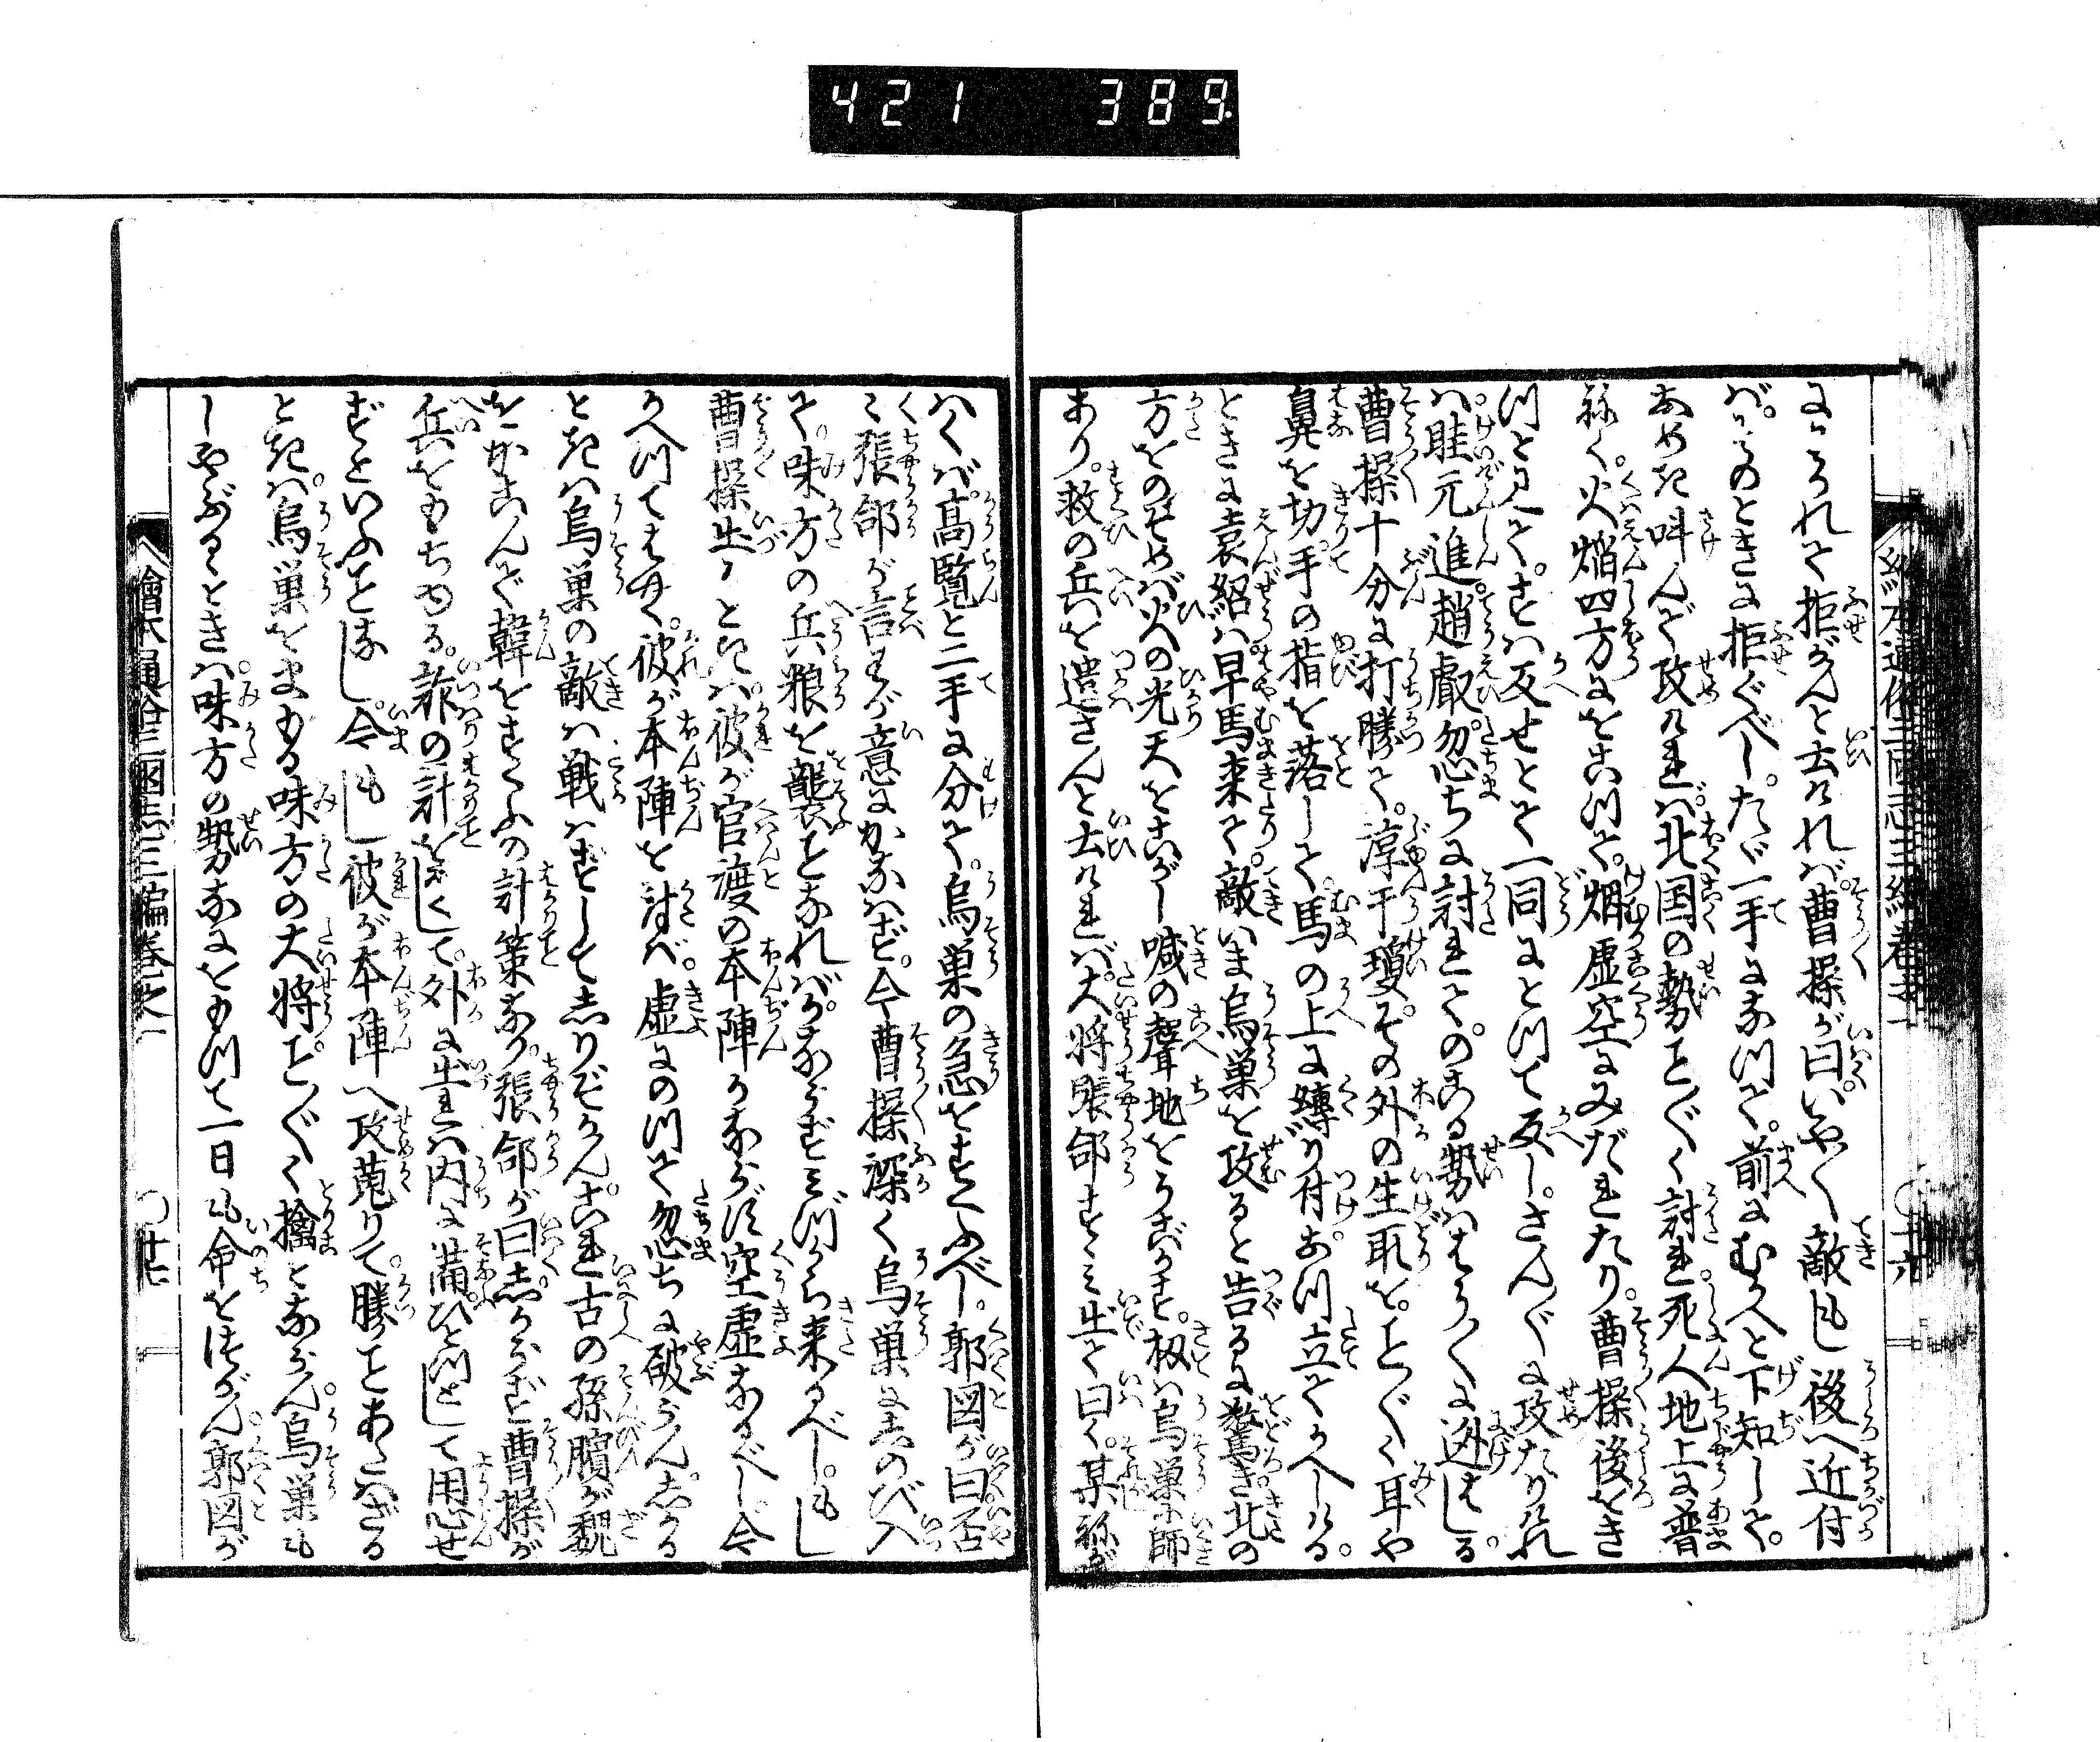 421 389
にこれを拒がんと云れば曹操が曰いや〳〵敵もし後へ近付
ばそのときに拒ぐべしたゞ一手になつて前にむかへと下知して
おめき叫んで攻ければ北国の勢こと〴〵く討れ死人地上に普
ねく火焔四方におこつて烟虚空にみだれたり曹操後をき
つと見てすは反せとて一同にとつて反しさん〴〵に攻たりけれ
ば眭元進趙叡忽ちに討れてのこる勢はちり〴〵に迯はしる
曹操十分に打勝て淳于瓊その外の生取をこと〴〵く耳や
鼻を切手の指を落して馬の上に縛り付おつ立てかへしける
ときに袁紹は早馬来て敵いま烏巣を攻ると告るに驚き北の
方をのぞめば火の光天をこがし喊の聲地をうごかす扨は烏巣に師
あり救の兵を遣さんと云ければ大将張郃すゝみ出て曰く某ねがは
はくば高覧と二手に分て烏巣の急をすくふべし郭図が曰否
〳〵張郃が言わが意にかなはず今曹操深く烏巣にしのび入
て味方の兵粮を襲ことなればかならずみづから来るべしもし
曹操出るときは彼が官渡の本陣かならず空虚なるべし今
かへつてはやく彼が本陣を討べ虚にのつて忽ちに破らんしかる
ときは烏巣の敵は戦はずしてしりぞかんこれ古の孫臏が魏
をかこんで韓をすくふの計策なり張郃が曰しからず曹操が
兵をもちゆる詐の計をよくして外に出れば内に備ひとつとして用心せ
ずといふことなし今もし彼が本陣へ攻蒐りて勝ことあたはざる
ときは烏巣をまもる味方の大将こと〴〵く擒とならん烏巣も
しやぶるゝときは味方の勢なにをもつて一日も命をつながん郭図が
繪本通俗三國志三編巻之一
〇十七